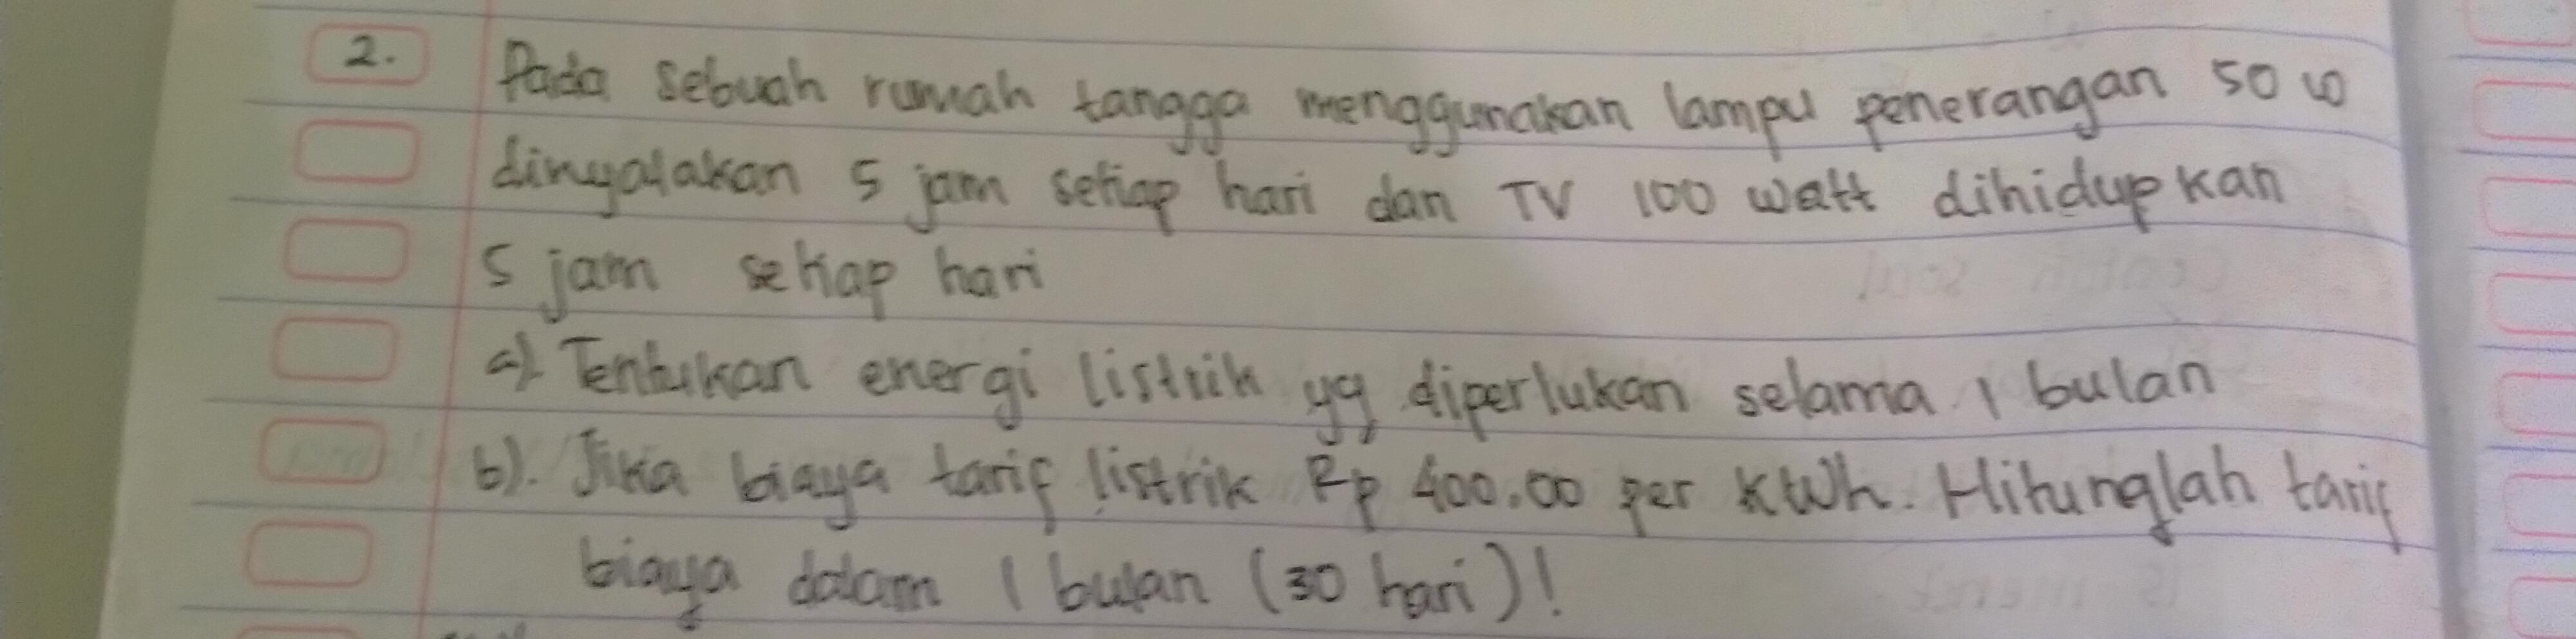 2. Pada sebuah rumah tangga menggunakan lampu penerangan 50 W
dinyalakan 5 jam setiap hari dan TV 100 watt dihidupkan
5 jam setiap hari
a). Tentukan energi listrik yg diperlukan selama 1 bulan
b). Jika biaya tarif listrik Rp 400.00 per KWh. Hitunglah tarif
biaya dalam 1 bulan (30 hari)!